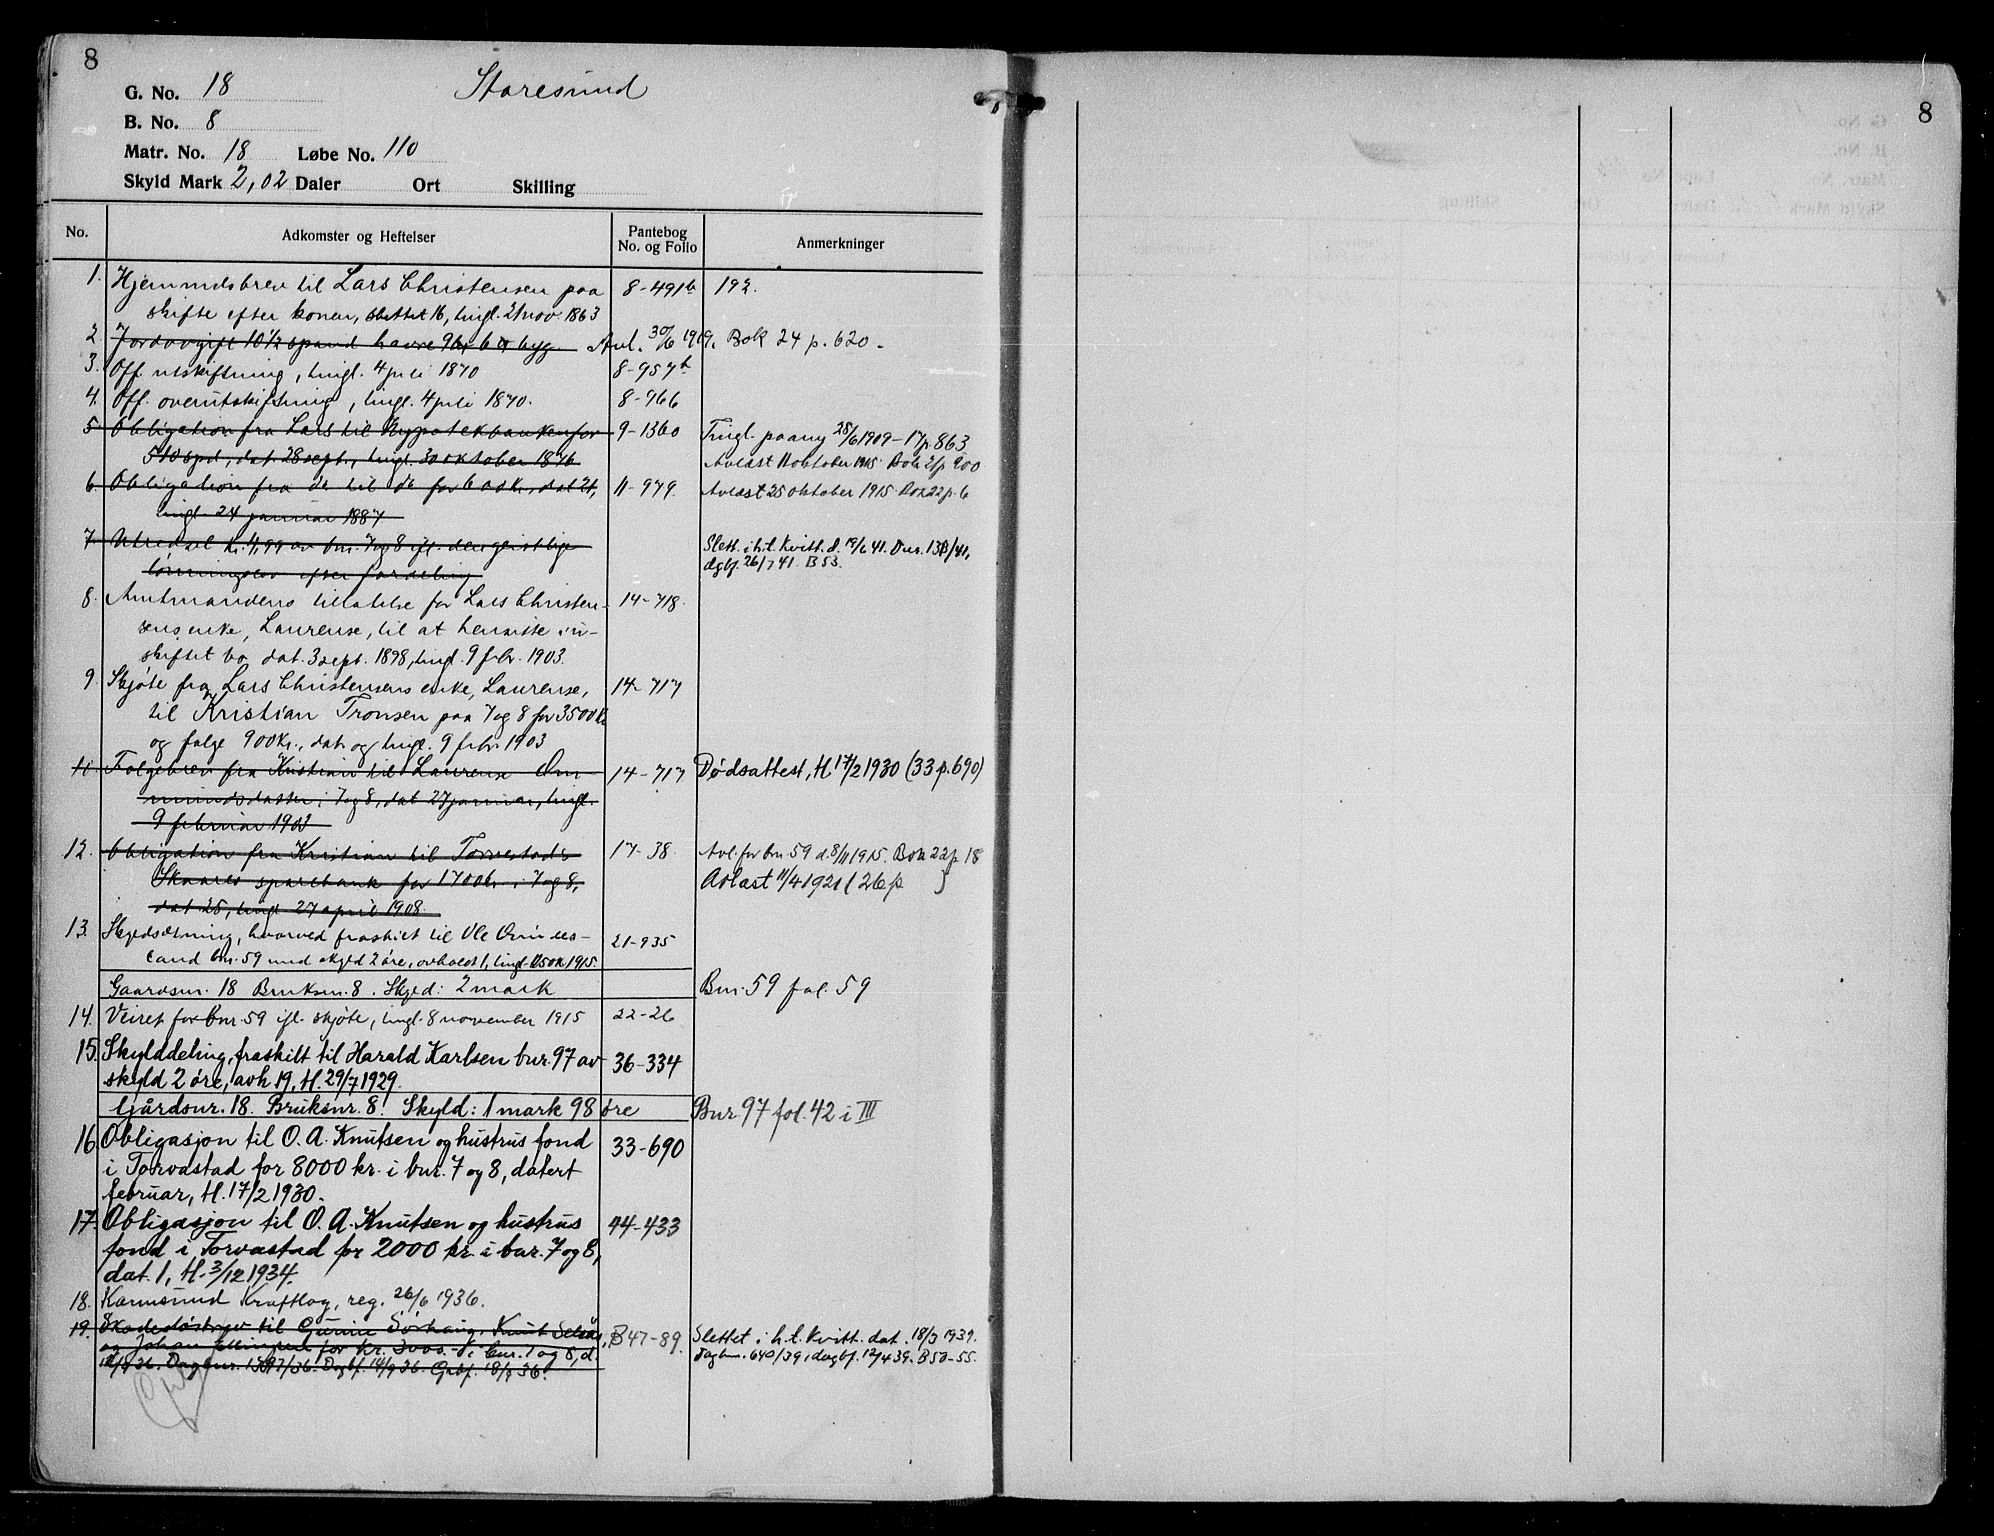 8
G. No. 18 Storesund
B. No. 8
Matr. No. 18 Løbe No. 110
Skyld Mark 2,02 Daler Ort Skilling
No. Adkomster og Heftelser Pantebog No. og Folio Anmerkninger
1. Hjemmelsbrev til Lars Christensen paa 8-491b 192.
skifte efter konen, sluttet 16, tingl. 21 nov. 1863
2. Jordavgift 10 1/2 spand havre byg. Avl. 30/6 1919. Bok 24 p. 620.
3. Off. utskiftning, tingl. 4 juli 1870 8-957b
4. Off. overutskiftning, tingl. 4 juli 1870. 8-966
5. Obligation fra Lars til Hypotekbanken for 9-1360 Tingl. paany 28/6 1909-17p 863
510 spd., dat. 28 sept., tingl. 30 oktober 1876 Avlæst 11 oktober 1915. Bok 21p 900
6. Obligation fra do til do for 600 kr., dat 21, 11-979. Avlæst 25 oktober 1915. Bok 22 p. 6
tingl. 24 januar 1887
7. Utredsel kr. 4,99 av bnr. 7 og 8 ifl. den geistlige Slett. i h.t. Kvitt. d. 19/6 41. Dnr. /41,
lønningslov efter fordeling dgbf. 26/7 41. B 53.
8. Amtmandens tillatelse for Lars Christen- 14-718.
sens enke, Laurense, til at hensitte i u-
skiftet bo dat. 3 sept. 1898, tingl. 9 febr. 1903.
9. Skjøte fra Lars Christensens enke, Laurense, 14-717
til Kristian Tronsen paa 7 og 8 for 3500 kr
og følge 900 kr., dat. og tingl. 9 febr. 1903
11. Følgebrev fra Kristian til Laurense Om- 14-717 Dødsattest, tl. 17/2 1930 (33 p. 690)
mundsdatter i 7 og 8, dat 27 januar, tingl.
9 februar 1903
12. Obligation fra Kristian til Torvestad & 17-38. Avl. for bnr. 59 d. 8/11 1915. Bok 22p. 18
Skaares sparebank for 1700 kr. i 7 og 8, Avlæst 11/4 1921 (26p )
dat 25, tingl 27 april 1908.
13. Skyldsætning, hvorved fraskilt til Ole 21-935
land bnr. 59 med skyld 2 øre, avholdt 1, tingl. 1915.
Gaardsnr. 18 Bruksnr. 8. Skyld: 2 mark Bnr. 59 fol. 59
14. Veiret for bnr. 59 ifl. skjøte, tingl. 8 november 1915 22-26
15. Skylddeling, fraskilt til Harald Karlsen bnr. 97 av 36-334
skyld 2 øre, avh 19, tl. 29/7 1929.
Gårdsnr. 18. Bruksnr. 8. Skyld: 1 mark 98 øre Bnr. 97 fol. 42 i III
16. Obligasjon til O. A. Knutsen og hustrus fond 33-690
i Torvastad for 8000 kr. i bnr. 7 og 8, datert
februar, tl. 17/2 1930.
17. Obligasjon til O. A. Knutsen og hustrus 44-433
fond i Torvastad for 2000 kr. i bnr. 7 og 8,
dat. 1, tl. 3/12 1934.
18. Karmsund Kraftlag, reg. 26/6 1936.
19. Skadesløsbrev til Gunnar Sørhaug, Knut Selsås, B 47-89. Slettet i h.t. Kvitt. dat. 18/3 1939.
og Johan for kr. 3000.- i bnr. 7 og 8, d. Dagbnr. 640/39, dagbf. 12/4 39. B 50-55.
36. Dagbnr. /36. Dagbf. 14/9 36. Grbf. 18/9 36.
8